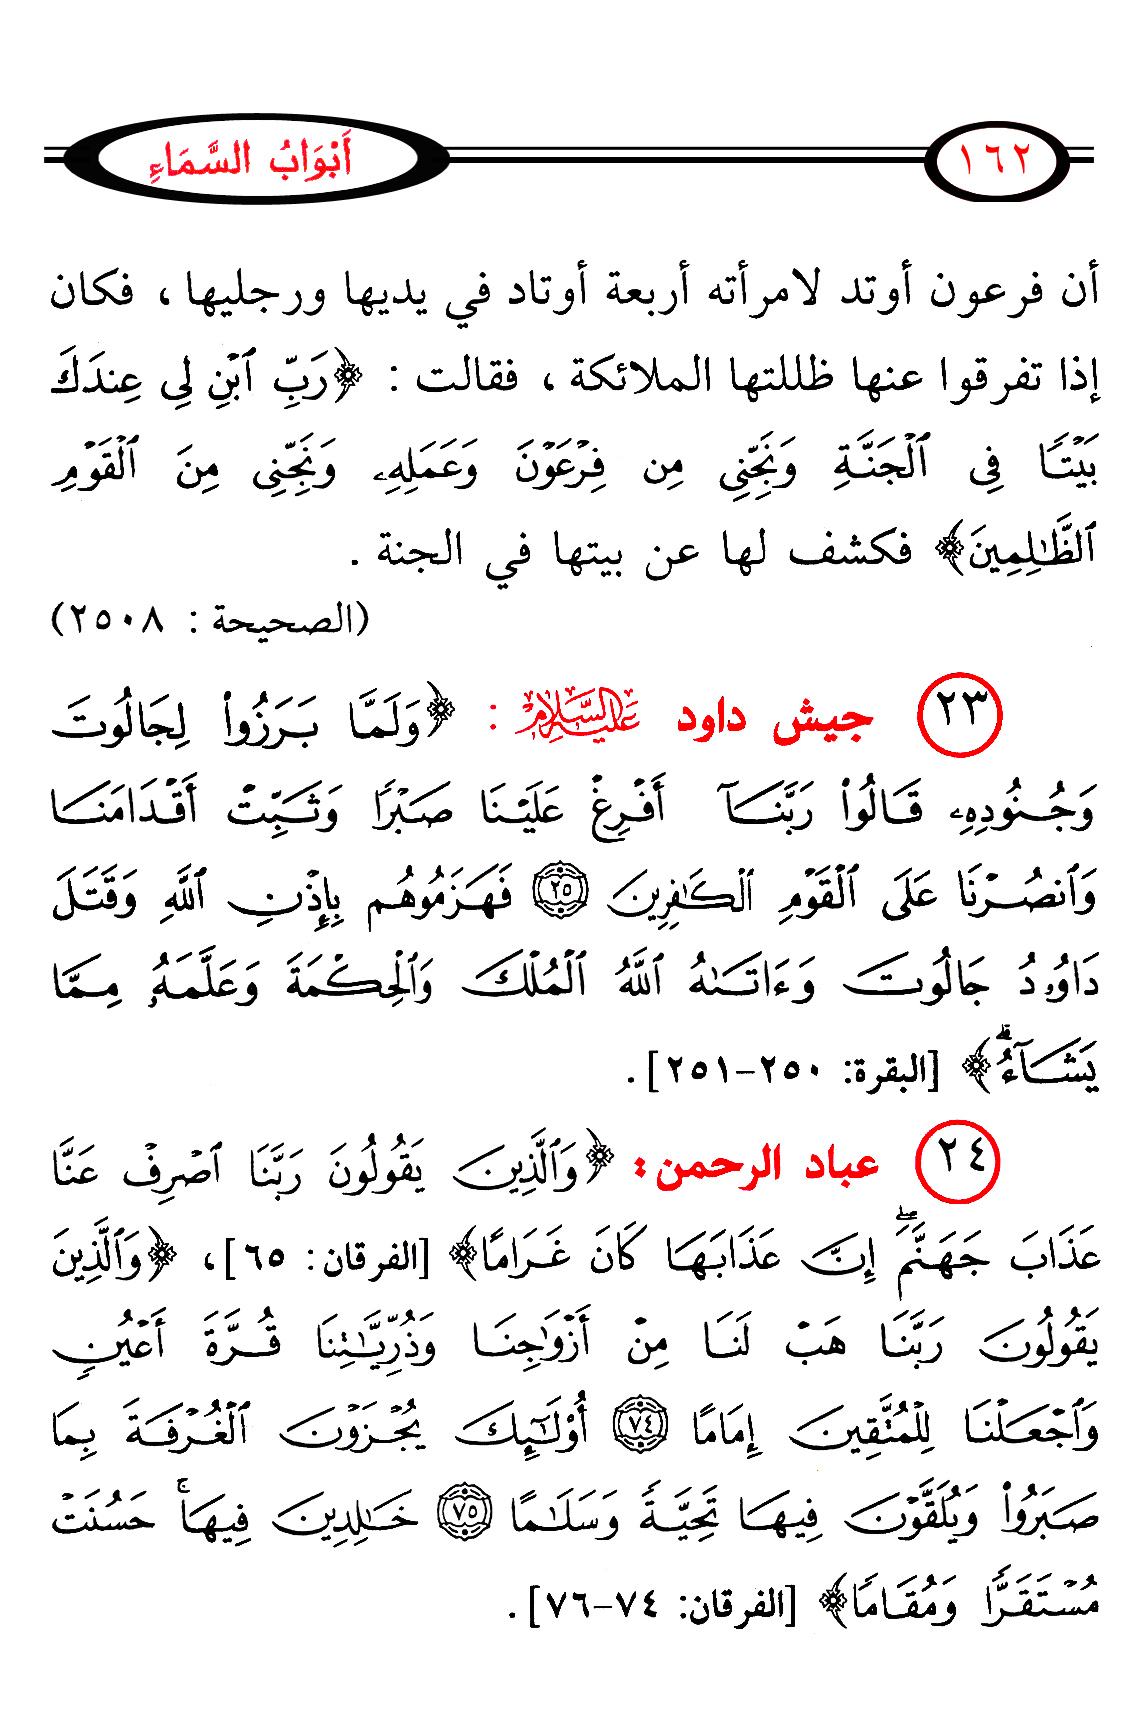 ١٦٢
أَبْوَابُ السَّمَاءِ
أن فرعون أوتد لامرأته أربعة أوتاد في يديها ورجليها، فكان
إذا تفرقوا عنها ظللتها الملائكة، فقالت: ﴿رَبِّ ٱبْنِ لِى عِندَكَ
بَيْتًا فِى ٱلْجَنَّةِ وَنَجِّنِى مِن فِرْعَوْنَ وَعَمَلِهِۦ وَنَجِّنِى مِنَ ٱلْقَوْمِ
ٱلظَّٰلِمِينَ﴾ فكشف لها عن بيتها في الجنة.
(الصحيحة: ٢٥٠٨)
٢٣ جيش داود عَلَيْهِ السَّلَام: ﴿وَلَمَّا بَرَزُوا۟ لِجَالُوتَ
وَجُنُودِهِۦ قَالُوا۟ رَبَّنَآ أَفْرِغْ عَلَيْنَا صَبْرًا وَثَبِّتْ أَقْدَامَنَا
وَٱنصُرْنَا عَلَى ٱلْقَوْمِ ٱلْكَٰفِرِينَ ٢٥ فَهَزَمُوهُم بِإِذْنِ ٱللَّهِ وَقَتَلَ
دَاوُۥدُ جَالُوتَ وَءَاتَىٰهُ ٱللَّهُ ٱلْمُلْكَ وَٱلْحِكْمَةَ وَعَلَّمَهُۥ مِمَّا
يَشَآءُ ۗ﴾ [البقرة: ٢٥٠-٢٥١].
٢٤ عباد الرحمن: ﴿وَٱلَّذِينَ يَقُولُونَ رَبَّنَا ٱصْرِفْ عَنَّا
عَذَابَ جَهَنَّمَ ۖ إِنَّ عَذَابَهَا كَانَ غَرَامًا﴾ [الفرقان: ٦٥]، ﴿وَٱلَّذِينَ
يَقُولُونَ رَبَّنَا هَبْ لَنَا مِنْ أَزْوَٰجِنَا وَذُرِّيَّٰتِنَا قُرَّةَ أَعْيُنٍ
وَٱجْعَلْنَا لِلْمُتَّقِينَ إِمَامًا ٧٤ أُو۟لَٰٓئِكَ يُجْزَوْنَ ٱلْغُرْفَةَ بِمَا
صَبَرُوا۟ وَيُلَقَّوْنَ فِيهَا تَحِيَّةً وَسَلَٰمًا ٧٥ خَٰلِدِينَ فِيهَا ۚ حَسُنَتْ
مُسْتَقَرًّا وَمُقَامًا﴾ [الفرقان: ٧٤-٧٦].